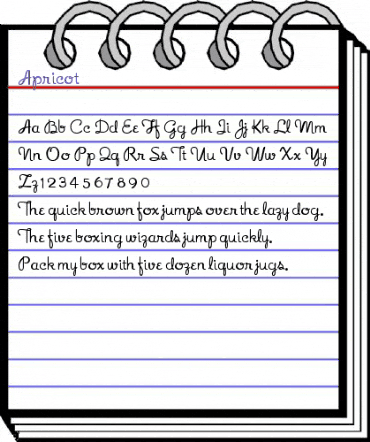 Apricot
Aa Bb Cc Dd Ee Ff Gg Hh Ii Jj Kk Ll Mm
Nn Oo Pp Qq Rr Ss Tt Uu Vv Ww Xx Yy
Zz 1 2 3 4 5 6 7 8 9 0
The quick brown fox jumps over the lazy dog.
The five boxing wizards jump quickly.
Pack my box with five dozen liquor jugs.